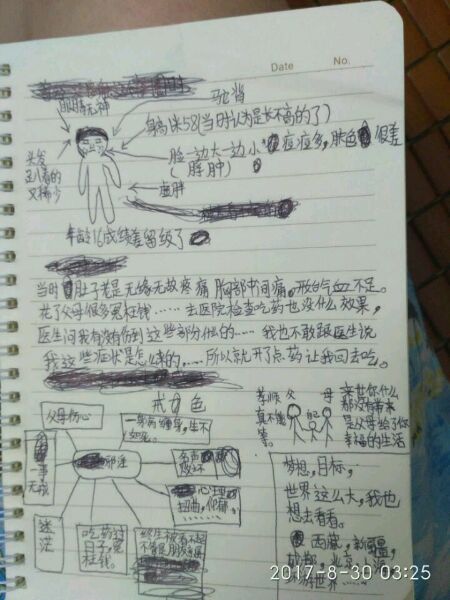 Date No.
眼睛无神
驼背
身高1米58(当时认为是长不高的了)
脸一边大一边小 痘痘多,肤色很差
(浮肿)
头发
又稀少
虚胖
年龄16成绩差留级了
当时肚子老是无缘无故疼痛 胸部中间痛。形的气血不足。
花了父母很多冤枉钱……去医院检查吃药也没什么效果,
医生问我有没有伤到这些部位的……我也不敢跟医生说
我这些症状是怎么来的……所以就开了点药让我回去吃。
戒 色
父母伤心
一身病缠身,生不如死。
名声
败坏
一事
无成
邪淫
心理
扭曲,
迷
茫
吃药过
日子,冤
枉钱。
孝顺 父 母
真不能
等。
自己
亲世你什么
都没有看本
是父母给了你
幸福的生活
梦想,目标,
世界这么大,我也
想去看看。
西藏,新疆,
成都,北京,
世界……
2017-8-30 03:25